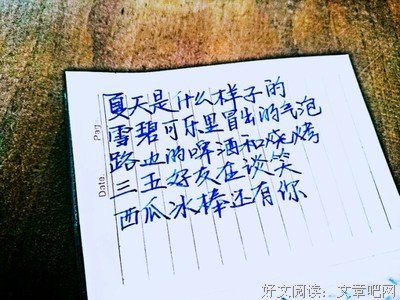 夏天是什么样子的
雪碧可乐里冒出的气泡
路边的啤酒和烧烤
三五好友在谈笑
西瓜冰棒还有你
Page
Date
好文阅读：文章吧网